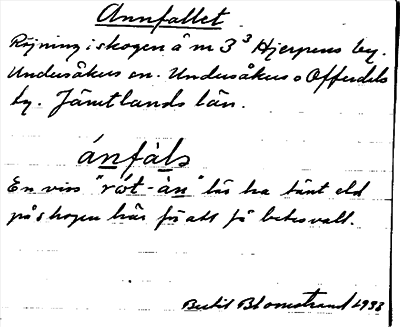 Annfallet
Röjning i skogen å m 3³ Hjerpens by.
Undersåkers sn. Undersåkers o Offerdals
tg. Jämtlands län.
ánfàls
En viss "rót-àn" lär ha tänt eld
på skogen här för att få betesvall.
Bertil Blomstrand 1933